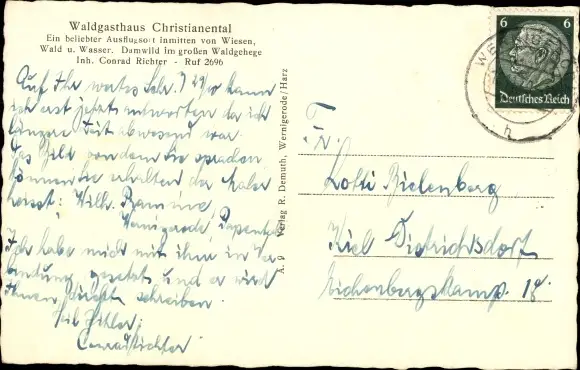 Waldgasthaus Christianental
Ein beliebter Ausflugsort inmitten von Wiesen,
Wald u. Wasser. Damwild im großen Waldgehege
Inh. Conrad Richter - Ruf 2696
Auf Ihr wertes Schr. 29/10 kann
ich erst jetzt antworten da ich
längere Zeit abwesend war.
Das Bild von dem Sie sprachen
können Sie erhalten der Maler
heisst: Wilh. Ramme,
Wernigerode,
Ich habe mich mit ihm in Ver
bindung gesetzt und er wird
Ihnen direkt schreiben.
Heil Hitler;
Conrad Richter
A. 9 Verlag R. Demuth, Wernigerode/Harz
6 6
Deutsches Reich
h
Frl.
Lotti Bielenberg
Kiel Dietrichsdorf
Eichenbergskamp. 18.